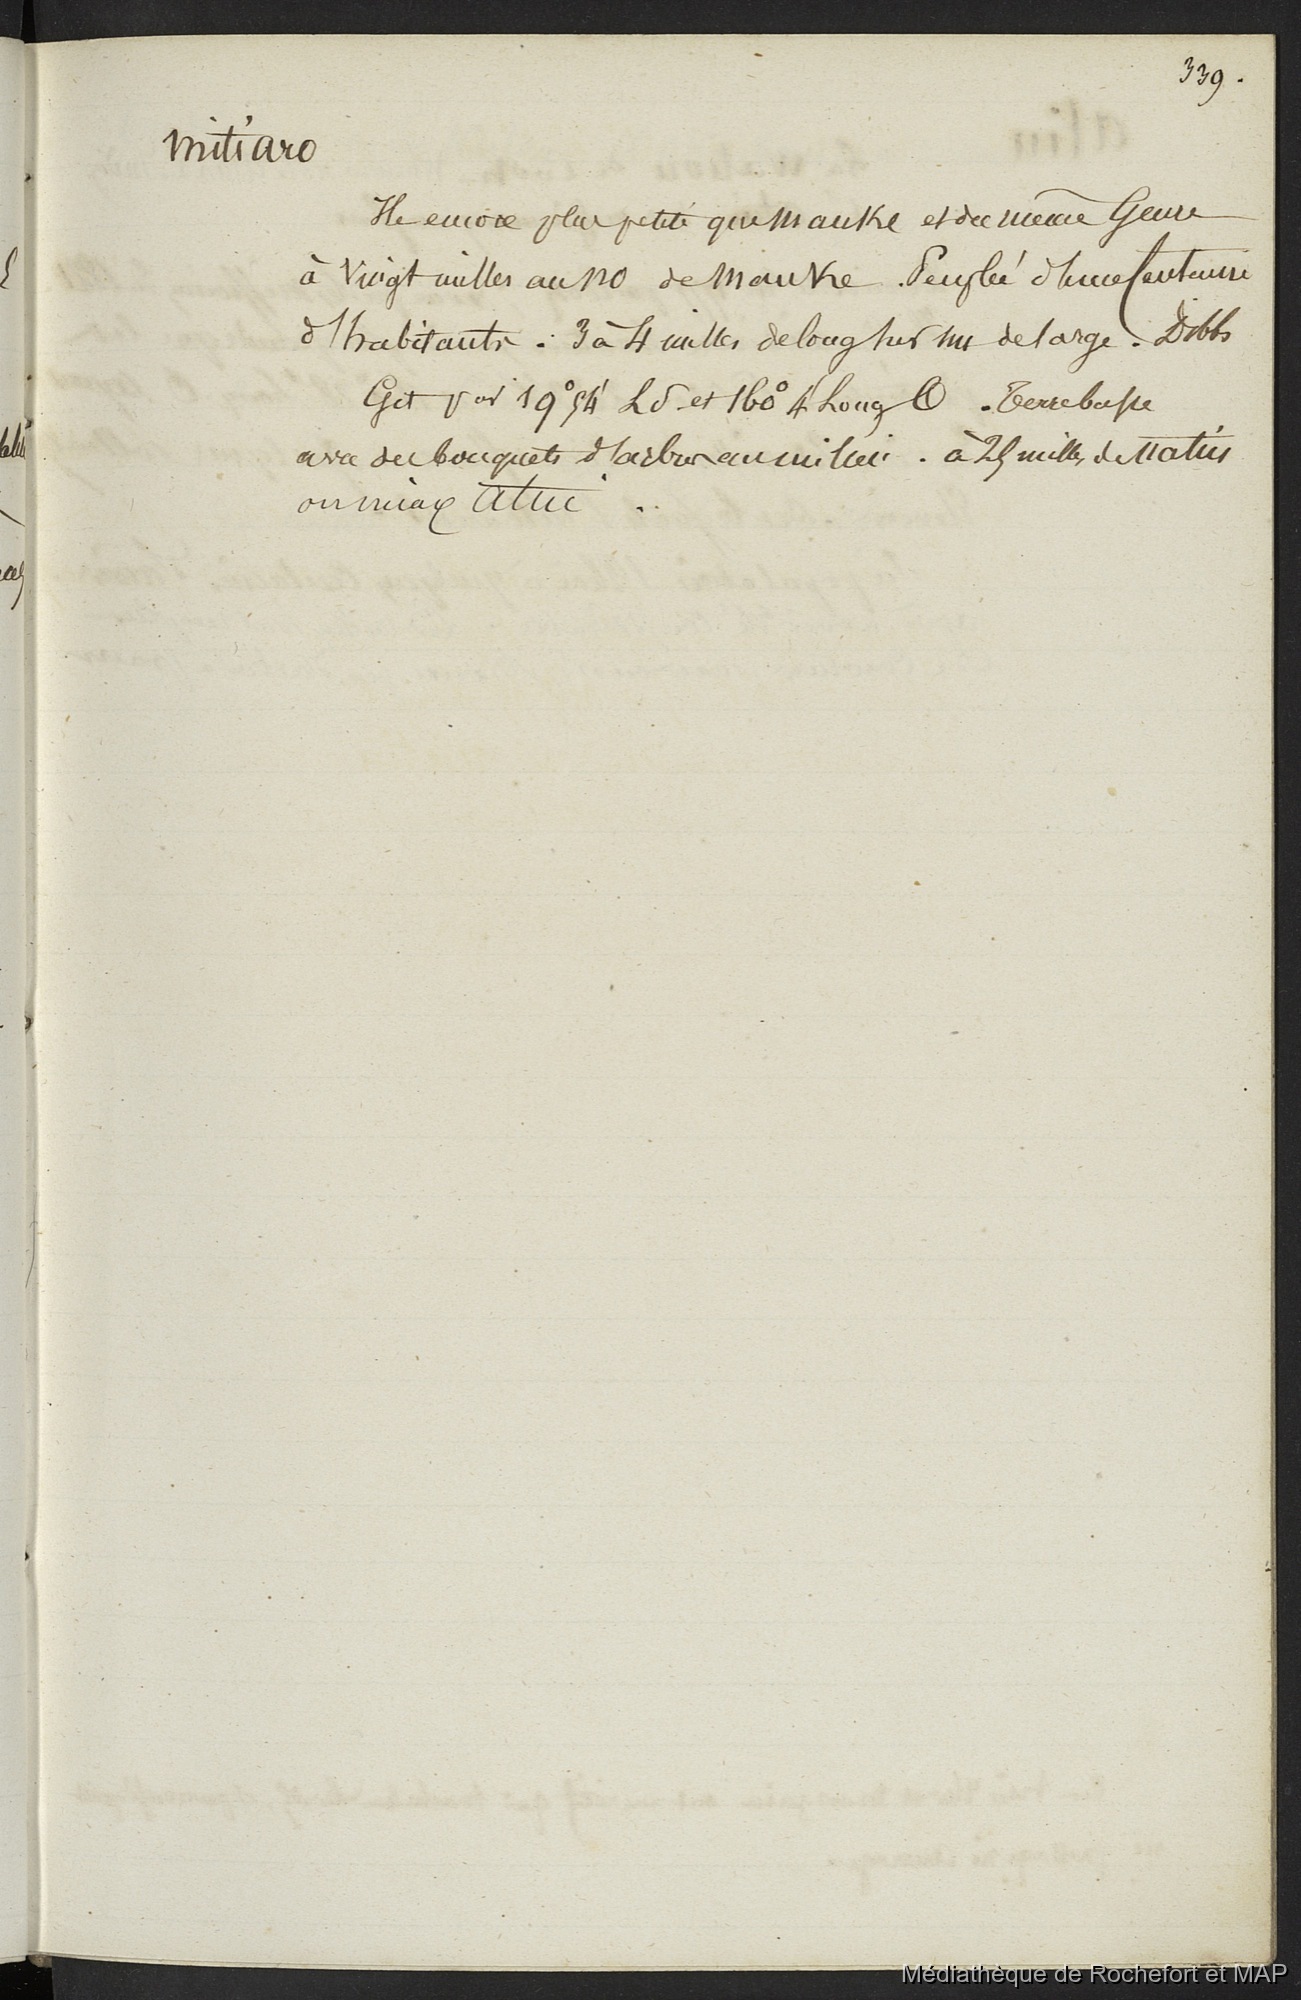 339.
Mitiaro
Ile encore plus petite que Mauke et du même Genre
à Vingt milles au NO de Mauke. Peuplée d'une Centaine
d'habitants. 3 à 4 milles de long sur un de large. Dibbs
Git par 19° 54' L S et 160° 4' Long O. Terre basse
avec des bouquets d'arbres au milieu. à 25 milles de Vatiu
ou mieux Atiu.
Médiathèque de Rochefort et MAP